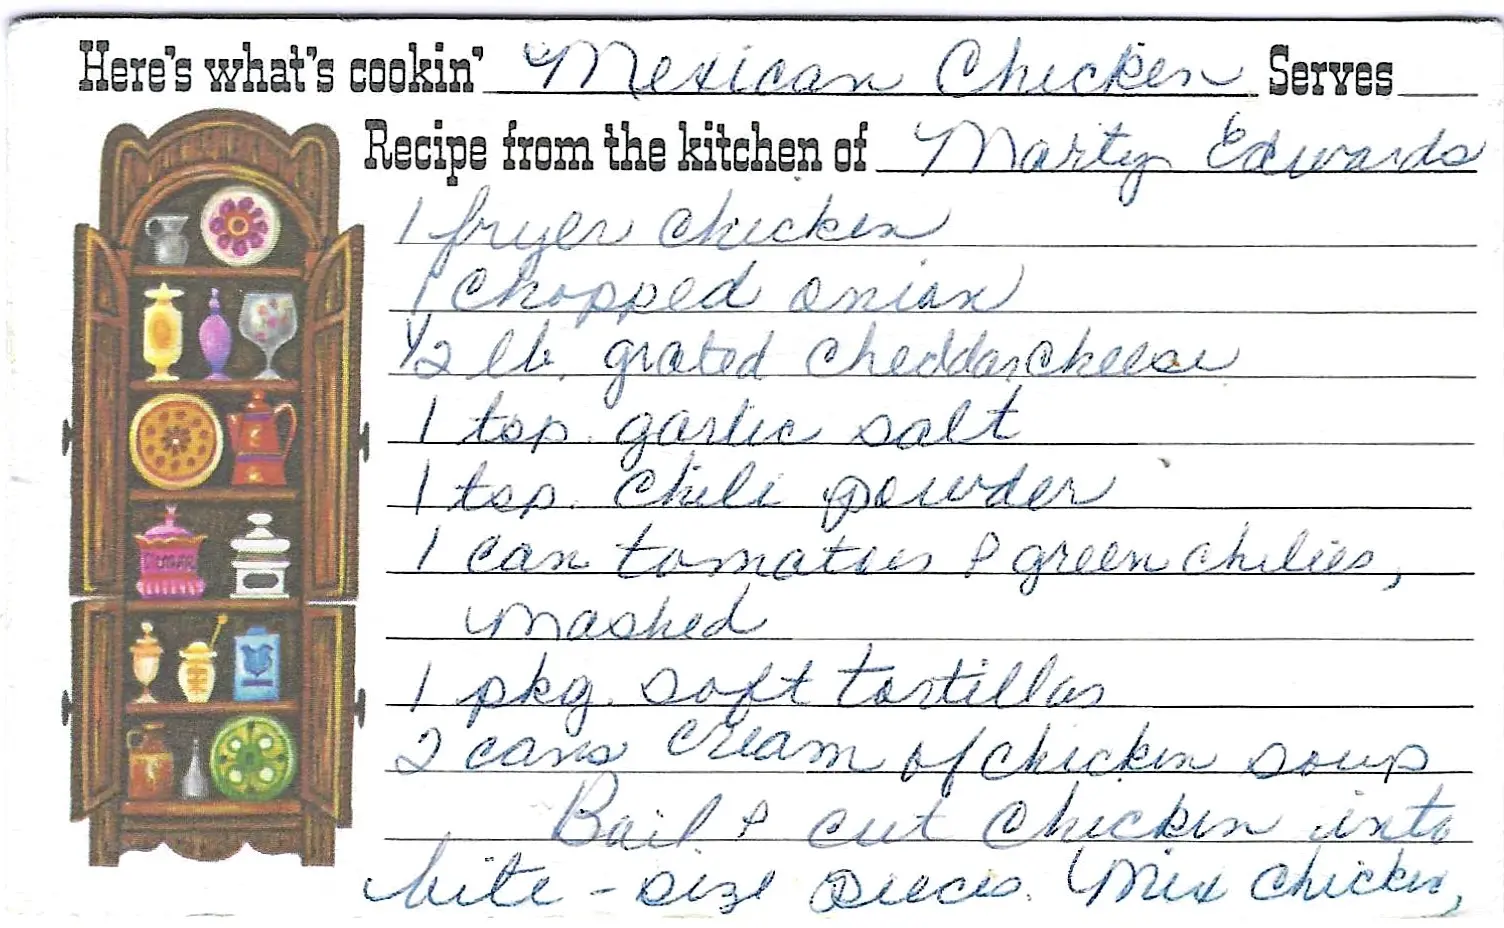 Here's what's cookin' Mexican Chicken Serves
Recipe from the kitchen of Marty Edwards
1 fryer chicken
1 chopped onion
1/2 lb. grated cheddar cheese
1 tsp. garlic salt
1 tsp. chili powder
1 can tomatoes & green chilies,
mashed
1 pkg. soft tortillas
2 cans cream of chicken soup
Boil & cut chicken into
bite-size pieces. Mix chicken,
SUGAR